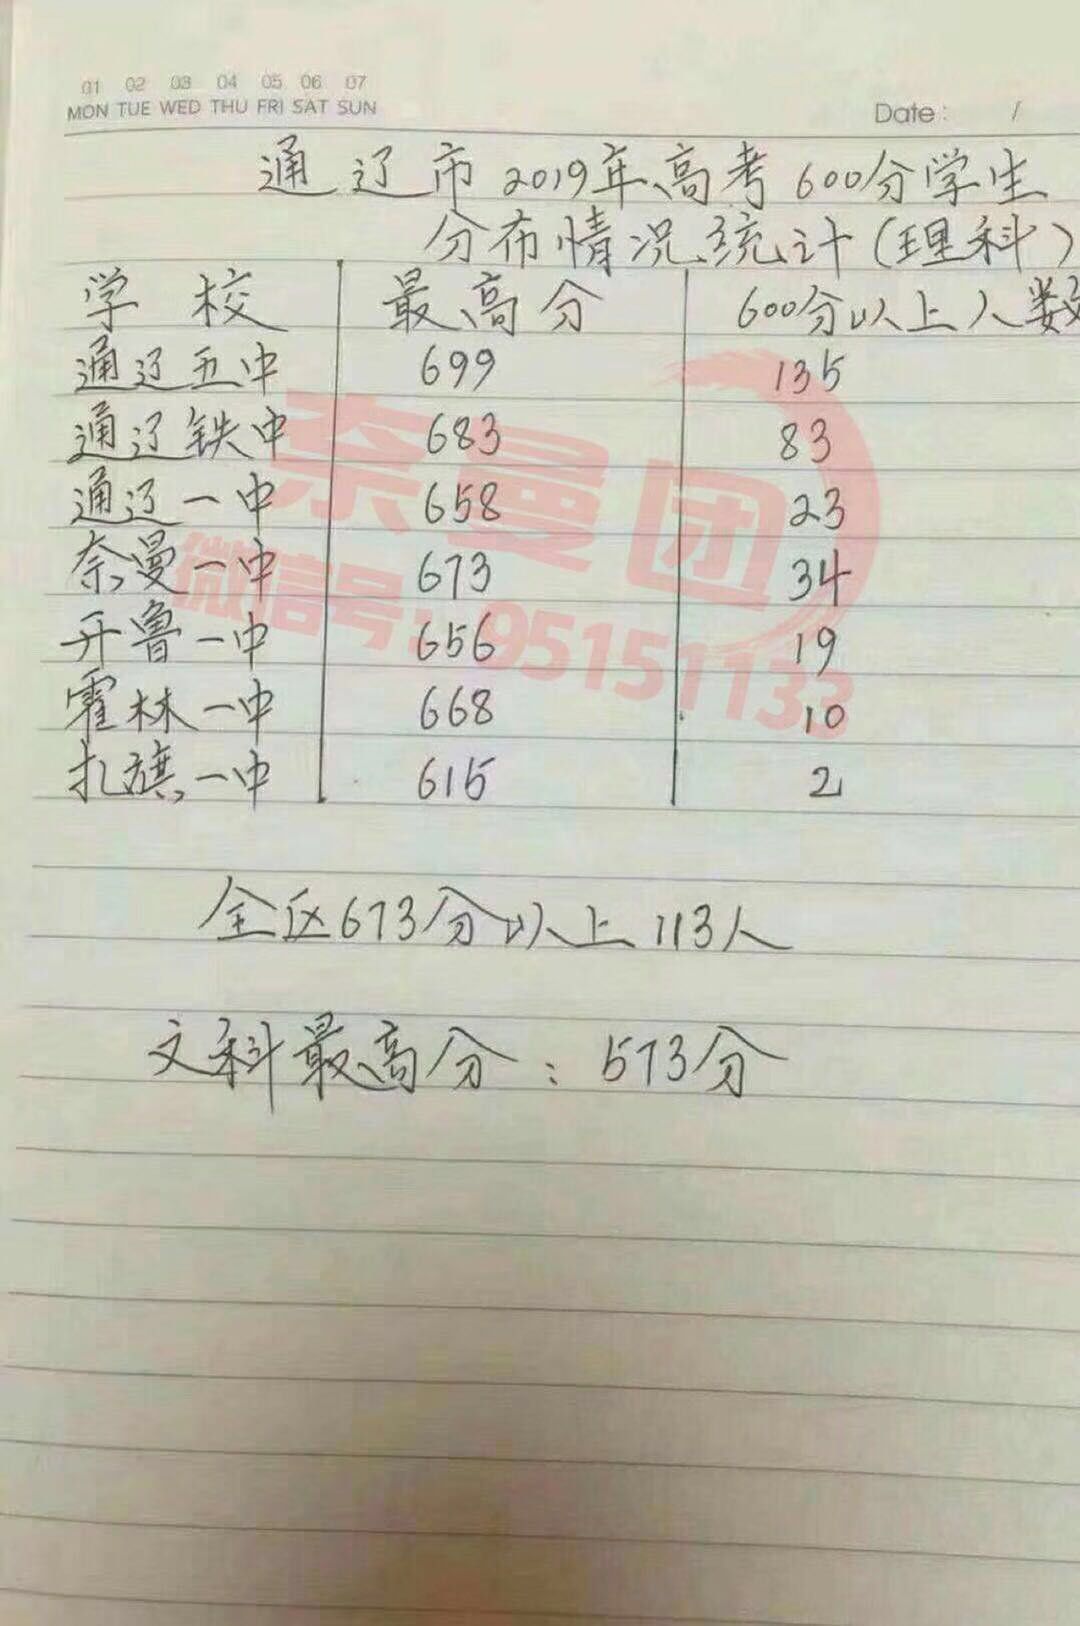 01 02 03 04 05 06 07
MON TUE WED THU FRI SAT SUN
Date: /
通辽市2019年高考600分学生
分布情况统计(理科)
学校 最高分 600分以上人数
通辽五中 699 135
通辽铁中 683 83
通辽一中 658 23
奈曼一中 673 34
开鲁一中 656 19
霍林一中 668 10
扎旗一中 615 2
全区673分以上113人
文科最高分:573分
奈曼团
微信号:95151133